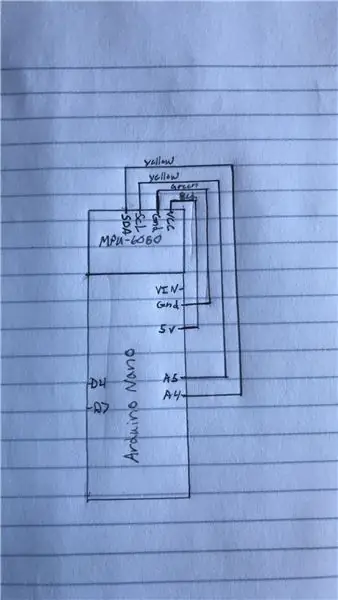 yellow
yellow
Green
Red
SDA
SCL
Gnd
VCC
MPU-6050
VIN
Gnd
5V
A5
A4
D4
D7
Arduino Nano